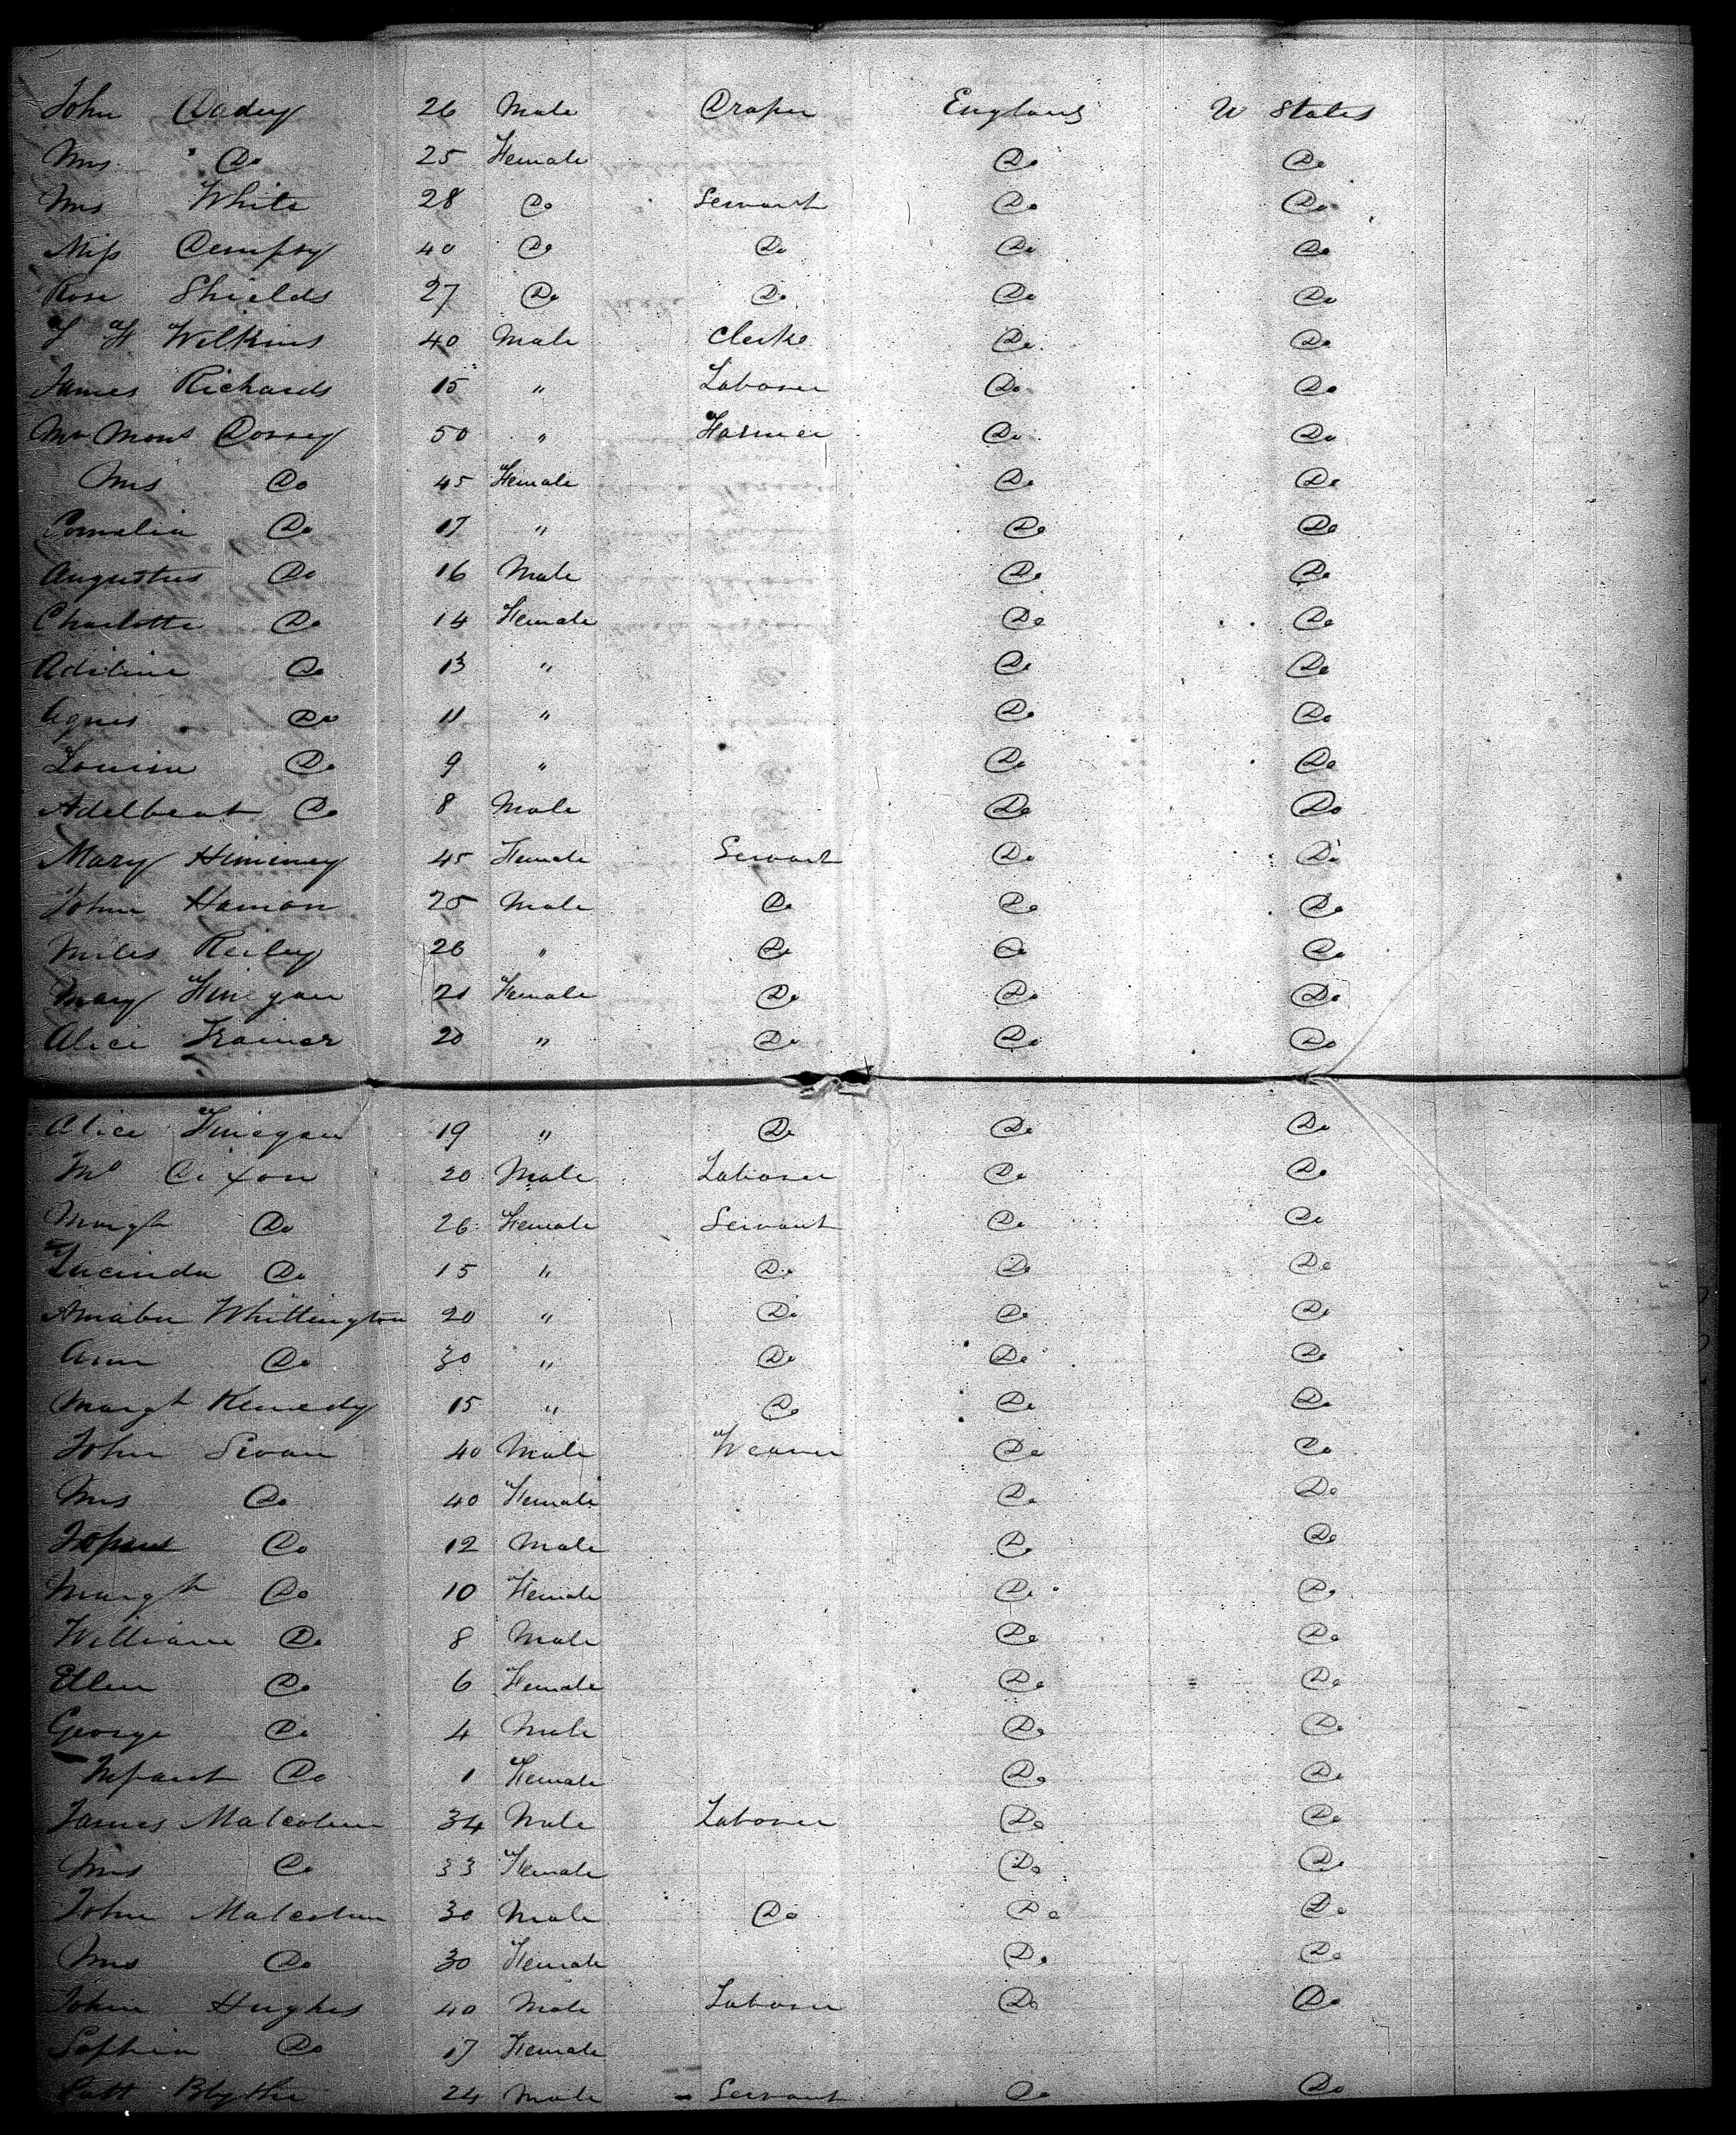 John Dadey 26 Male Draper England U States
Mrs Do 25 Female Do Do
Mrs White 28 Do Servant Do Do
Miss Dempsey 40 Do Do Do Do
Rose Shields 27 Do Do Do Do
J H Wilkins 40 Male Clerke Do Do
James Richards 15 " Laborer Do Do
Mr Dorsey 50 " Farmer Do Do
Mrs Do 45 Female Do Do
Cornelia Do 17 " Do Do
Augustus Do 16 Male Do Do
Charlotte Do 14 Female Do Do
Adiline Do 13 " Do Do
Agnes Do 11 " Do Do
Louisa Do 9 " Do Do
Adelbeart Do 8 Male Do Do
Mary 45 Female Servant Do Do
John Hamon 25 Male Do Do Do
Miles Reiley 26 " Do Do Do
Mary Finegan 21 Female Do Do Do
Alice Trainer 20 " Do Do Do
Alice Finegan 19 " Do Do Do
Mr Dixon 20 Male Laborer Do Do
Margt Do 26 Female Servant Do Do
Lucinda Do 15 " Do Do Do
Whittington 20 " Do Do Do
Ann Do 30 " Do Do Do
Margt Kennedy 15 " Do Do Do
John Swan 40 Male Weaver Do Do
Mrs Do 40 Female Do Do
Do 12 Male Do Do
Margt Do 10 Female Do Do
William Do 8 Male Do Do
Ellen Do 6 Female Do Do
George Do 4 Male Do Do
Infant Do 1 Female Do Do
James Malcolum 34 Male Laborer Do Do
Mrs Do 33 Female Do Do
John Malcolum 30 Male Do Do Do
Mrs Do 30 Female Do Do
John Hughes 40 Male Laborer Do Do
Sophia Do 17 Female
Patt Blythe 24 Male Servant Do Do